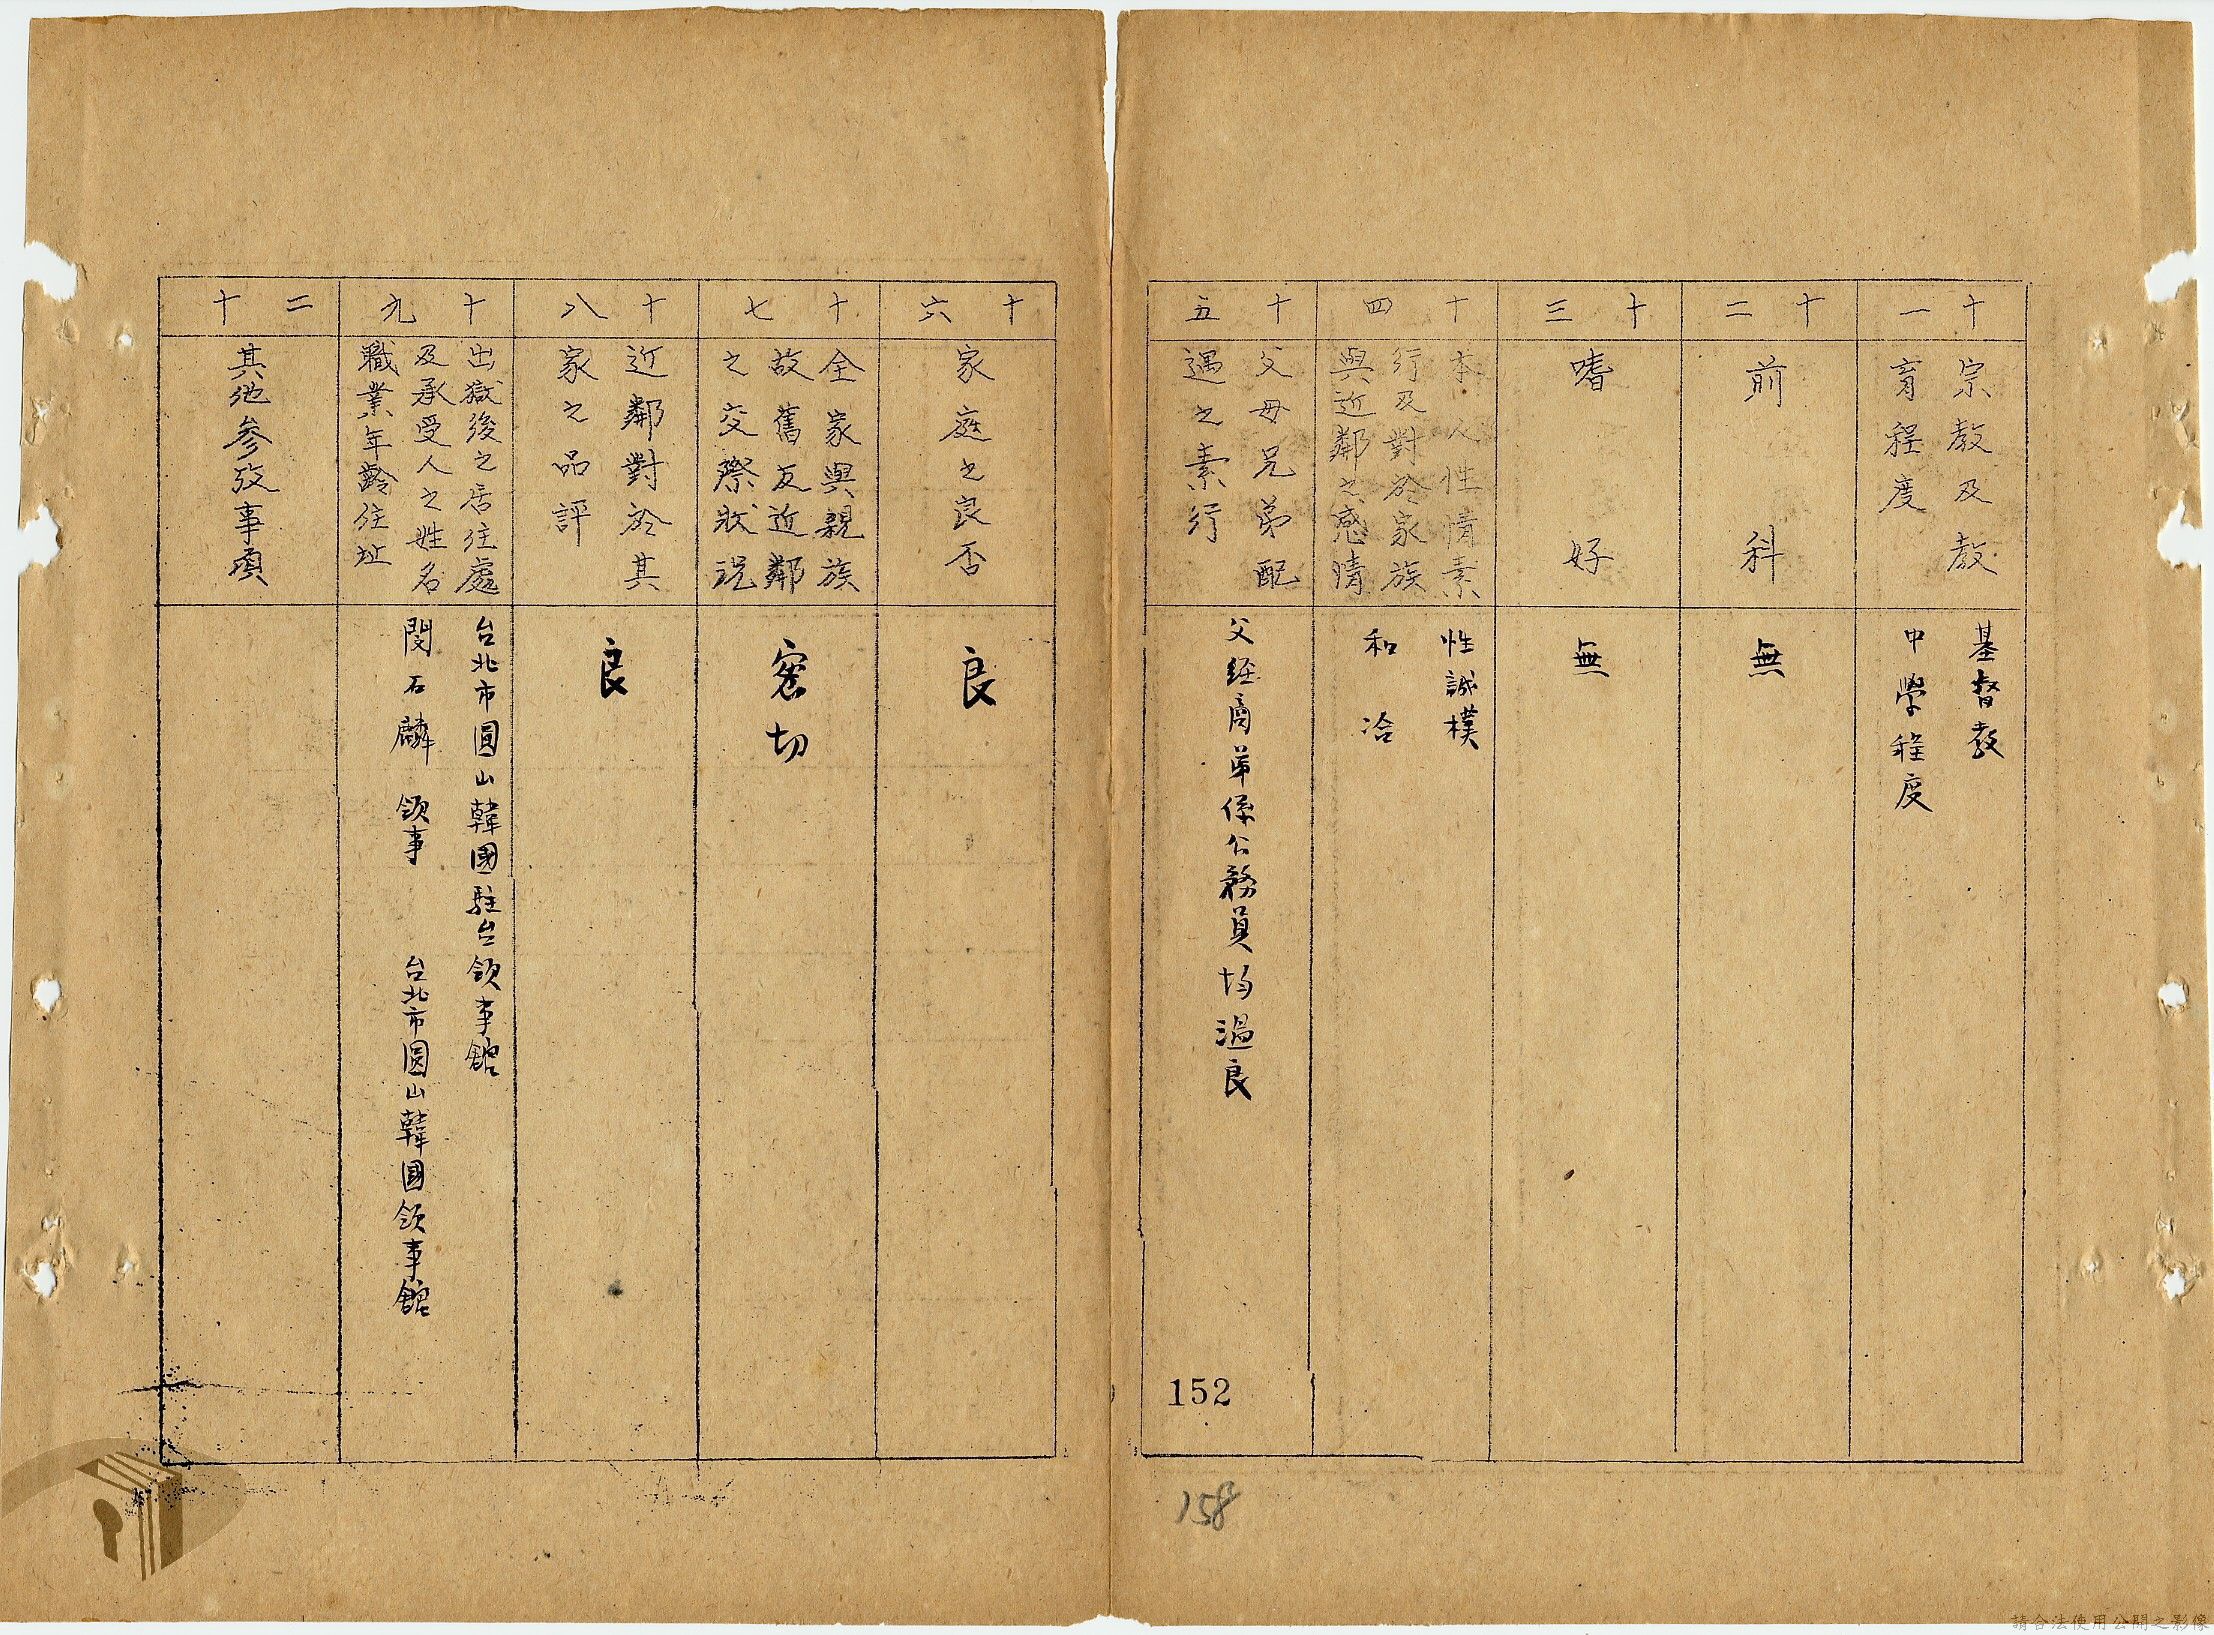 十一
宗教及教
育程度
基督教
中學程度
十二
前科
無
十三
嗜好
無
十四
本人性情素
行及對於家族
與近鄰之感情
性誠樸
和洽
十五
父母兄弟配
遇之素行
父經商弟係公務員均溫良
152
158
十六
家庭之良否
良
十七
全家與親族
故舊友近鄰
之交際狀況
密切
十八
近鄰對於其
家之品評
良
十九
出獄後之居住處
及承受人之姓名
職業年齡住址
台北市圓山韓國駐台領事館
閔石麟 領事 台北市圓山韓國領事館
二十
其他參攷事項
請合法使用公開之影像